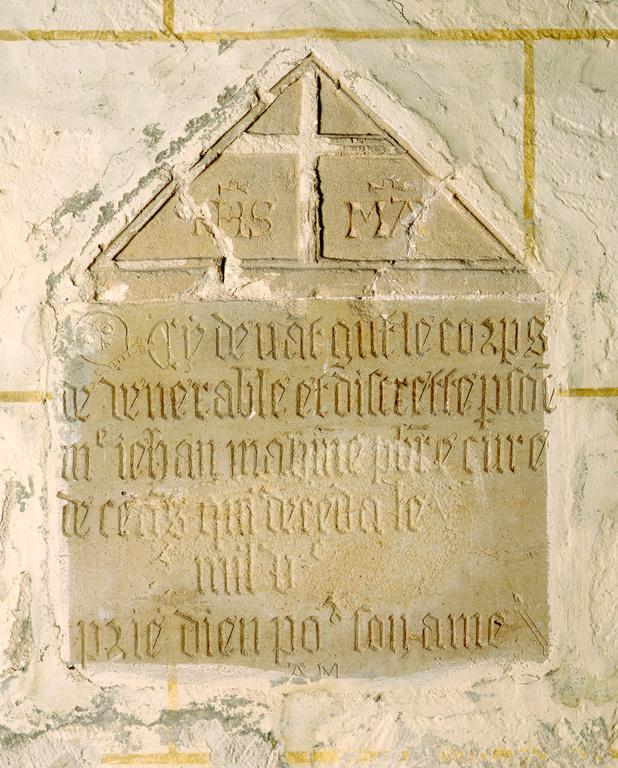 IHS MA
Cy devāt gist le corps
de venerable et discrette psōe
mᵉ iehan mahᵐe pbr̄e cure
de ceās qui deceda le
mil vᶜ
priē dieu poʳ son ame
A M